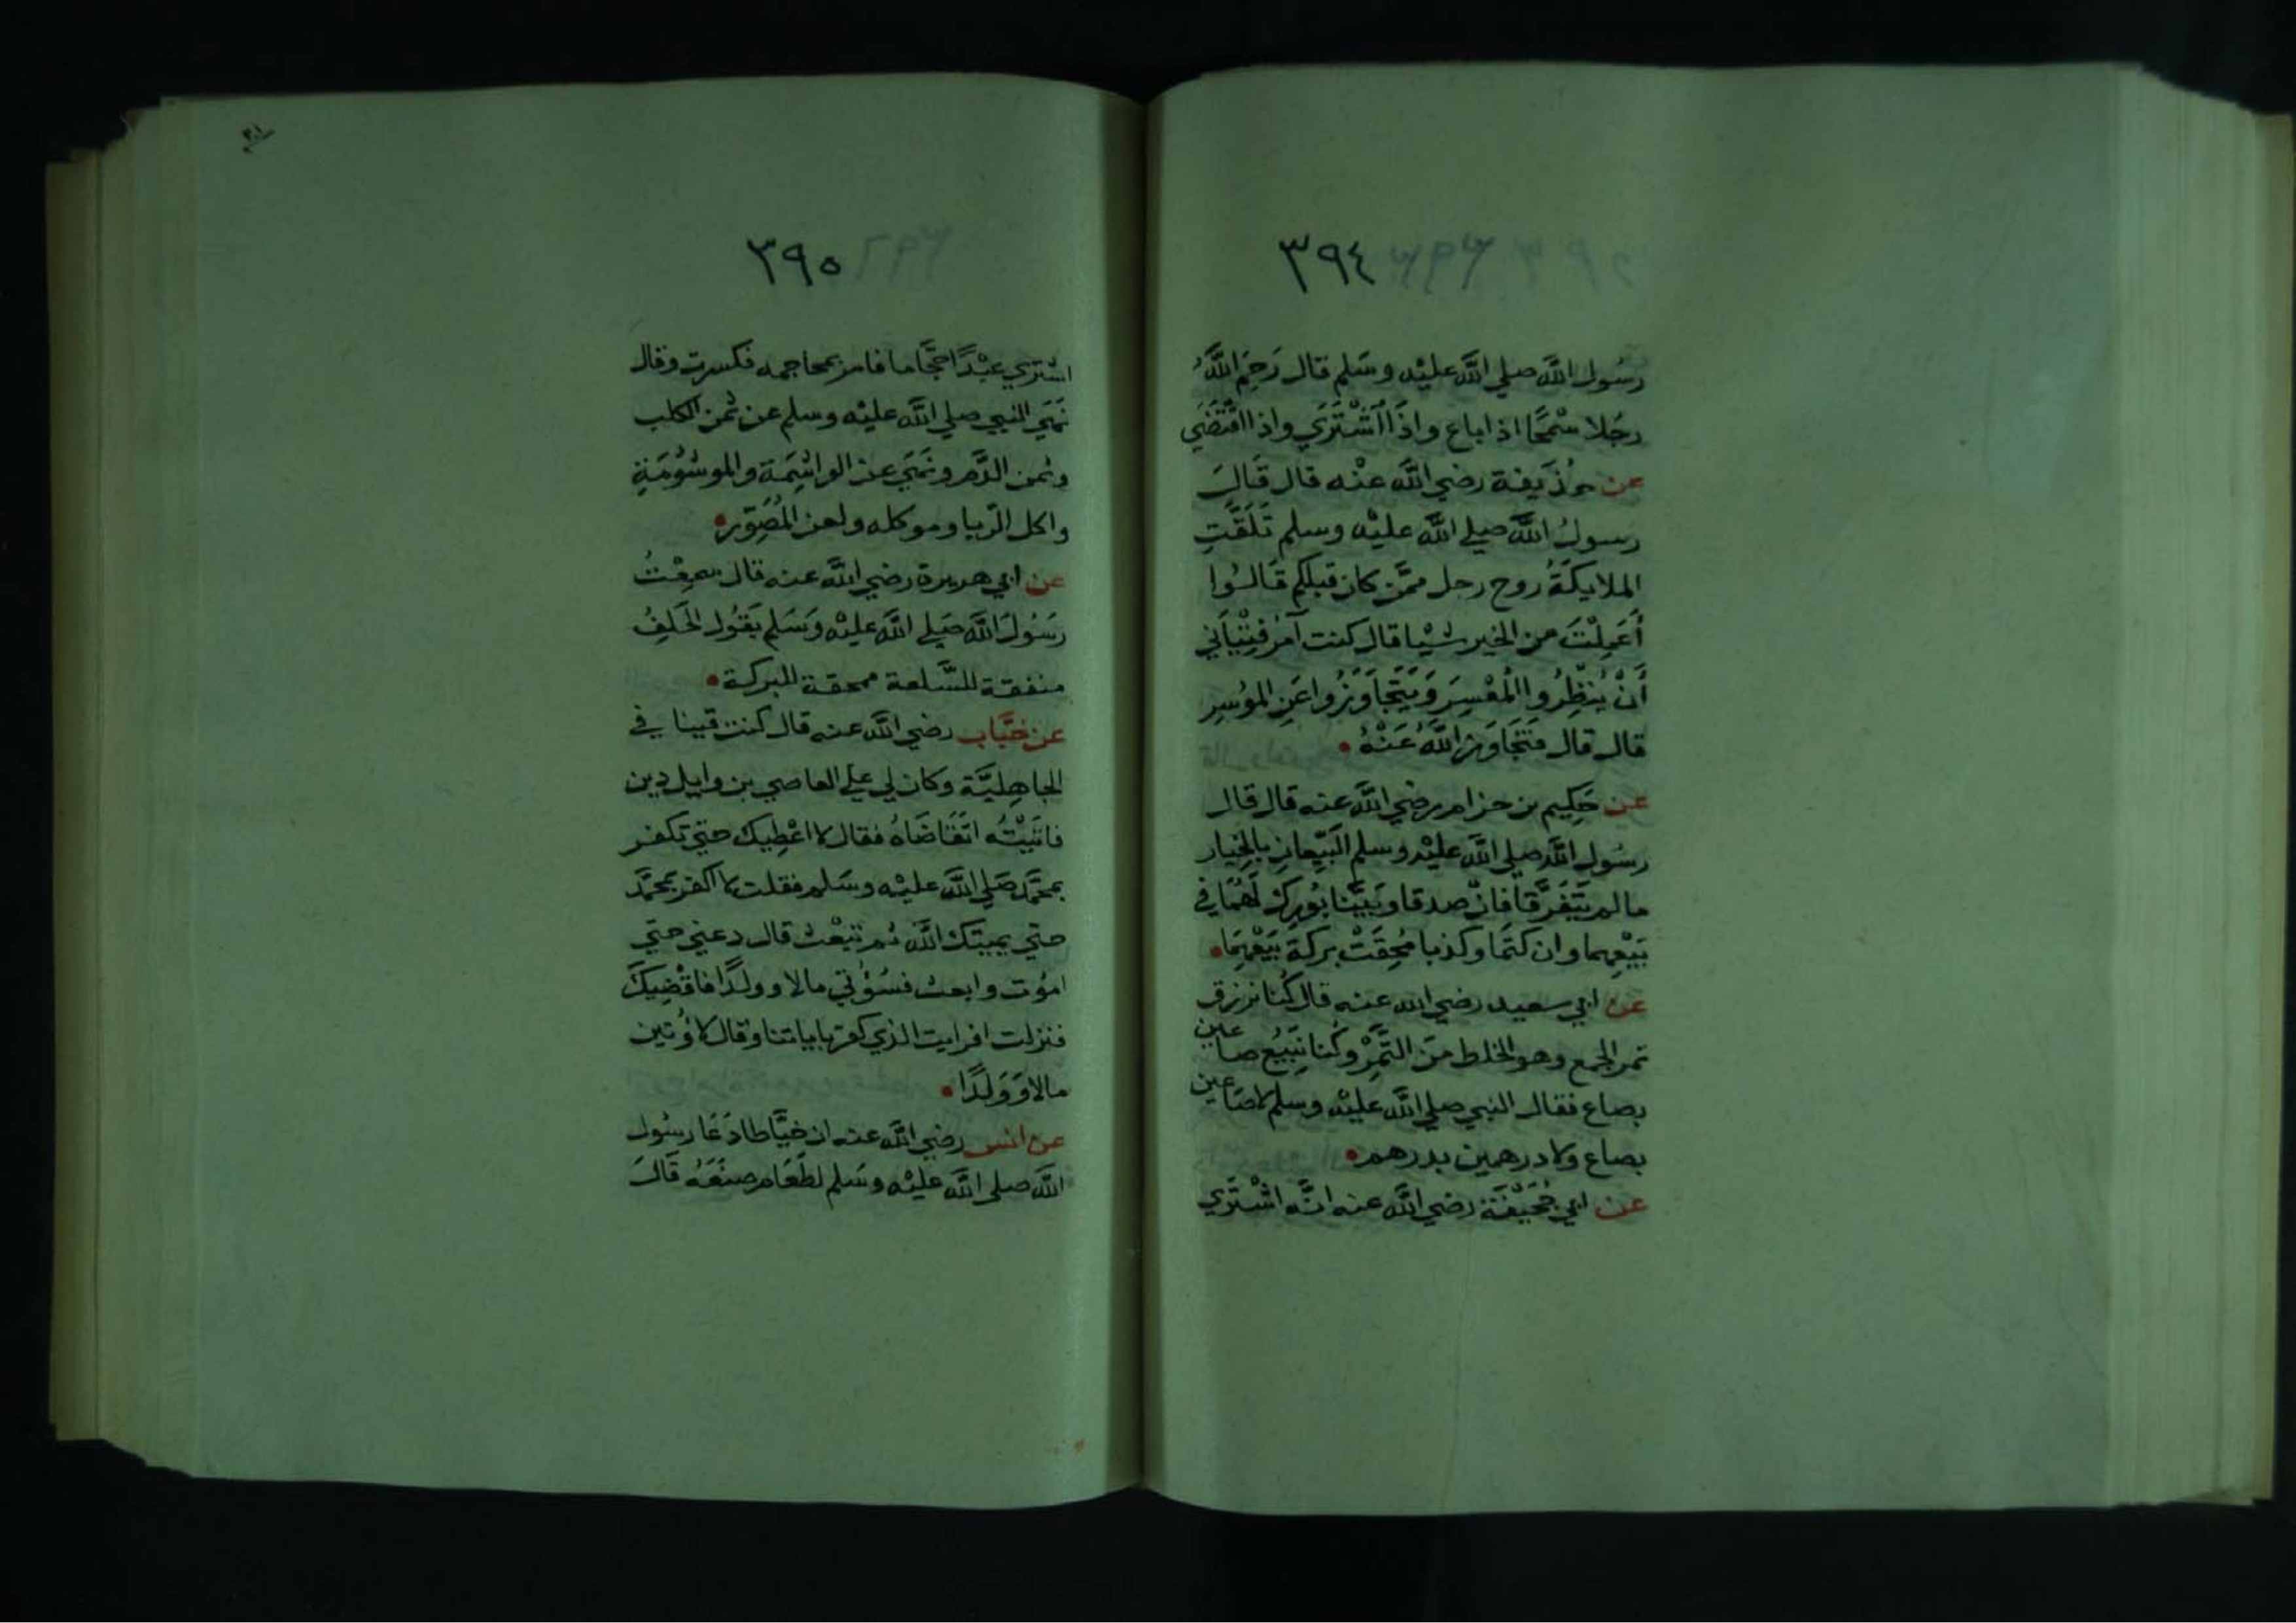 ٣٩٤
رسُول اللَّه صلي اللَّه عليْه وسَلم قال رَحِمَ اللَّهُ
رجُلا سْمَحًا اذا باع واذَا اشْتَرَي واذا اقْتَضَي
عن حُذَيفة رضي اللَّه عنْه قال قَالَ
رسولُ اللَّه صلي اللَّه عليْه وسلم تَلَقَّتِ
الملايكَةُ روح رجل ممَّن كان قبلكم قَالُوا
أَعَمِلْتَ من الخير شيْا قال كنت آمُر فِتْيَاني
أَنْ يُنظِرُوا المُعْسِرَ وَيَتَجَاوَزُوا عَنِ المُوسِر
قال قال فَتَجَاوَز اللَّهُ عَنْهُ
عن حَكِيم بن حزام رضي اللَّه عنه قال قال
رسُول اللَّه صلي اللَّه عليْه وسلم البَيِّعانِ بالخِيار
ما لم يتَفَرَّقَا فانْ صدقا وبَيَّنا بُورِكَ لَهُمَا في
بَيْعِهِما وان كتَمَا وكذبا مُحِقَتْ بركة بَيْعِهِمَا
عن ابي سعيد رضي الله عنه قال كُنا نرزق
تمر الجمع وهو الخلط منَ التَّمِرْ وكُنا نَبِيعُ صاعين
بصاع فقال النبي صلي اللَّه عليْه وسلم لا صَاعين
بصاع ولا درهمين بدرهم
عن ابي جُحَيْفَة رضي اللَّه عنه انَّه اشْتَرَي
٣٠١
٣٩٥
اشتري عبْدًا حجَّاما فامر بمحاجمه فكسرت وقال
نَهَي النبي صلي اللَّه عليْه وسلم عن ثمن الكلب
وثمن الدَّم ونَهَي عن الواشِمَة والموشُومَةِ
واكل الرِّبا وموكله ولعن المُصَوِّر
عن ابي هريرة رضي اللَّه عنه قال سمِعْتُ
رَسُولَ اللَّه صَلي اللَّه عليْه وَسَلم يَقُول الحَلِفُ
منفقة للسَّلعة ممحقة للبركة
عن خبَّاب رضي اللَّه عنه قال كنت قينا في
الجاهِليَّة وكان لي علي العاصي بن وايل دين
فاتَيْتُه اتَقَاضَاهُ فقال لا اعْطِيك حتي تكفر
بمحَمَّد صَلي اللَّه عليْه وسَلم فقلت لا اكفر بمحَمَّد
حتي يميتك اللَّه ثم تبْعث قال دعني حتي
امُوت وابعث فسَؤُتي مالا وولدًا فاقْضِيكَ
فنزلت افرايت الذي كفر باياتنا وقال لاؤُتين
مالا وَوَلَدًا
عن انس رضي اللَّه عنه ان خيَّاطا دَعَا رسُول
اللَّه صلي اللَّه عليْه وسَلم لطَعَام صنَعَهُ قَالَ